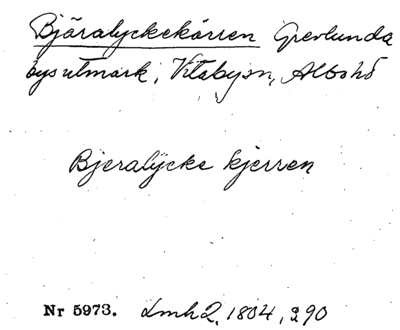 Bjäralyckekärren Grevlunda
bys utmark, Vitabysn, Albo hd
Bjeralÿcke kjerren
Nr 5973. Lmh2, 1804, s 90